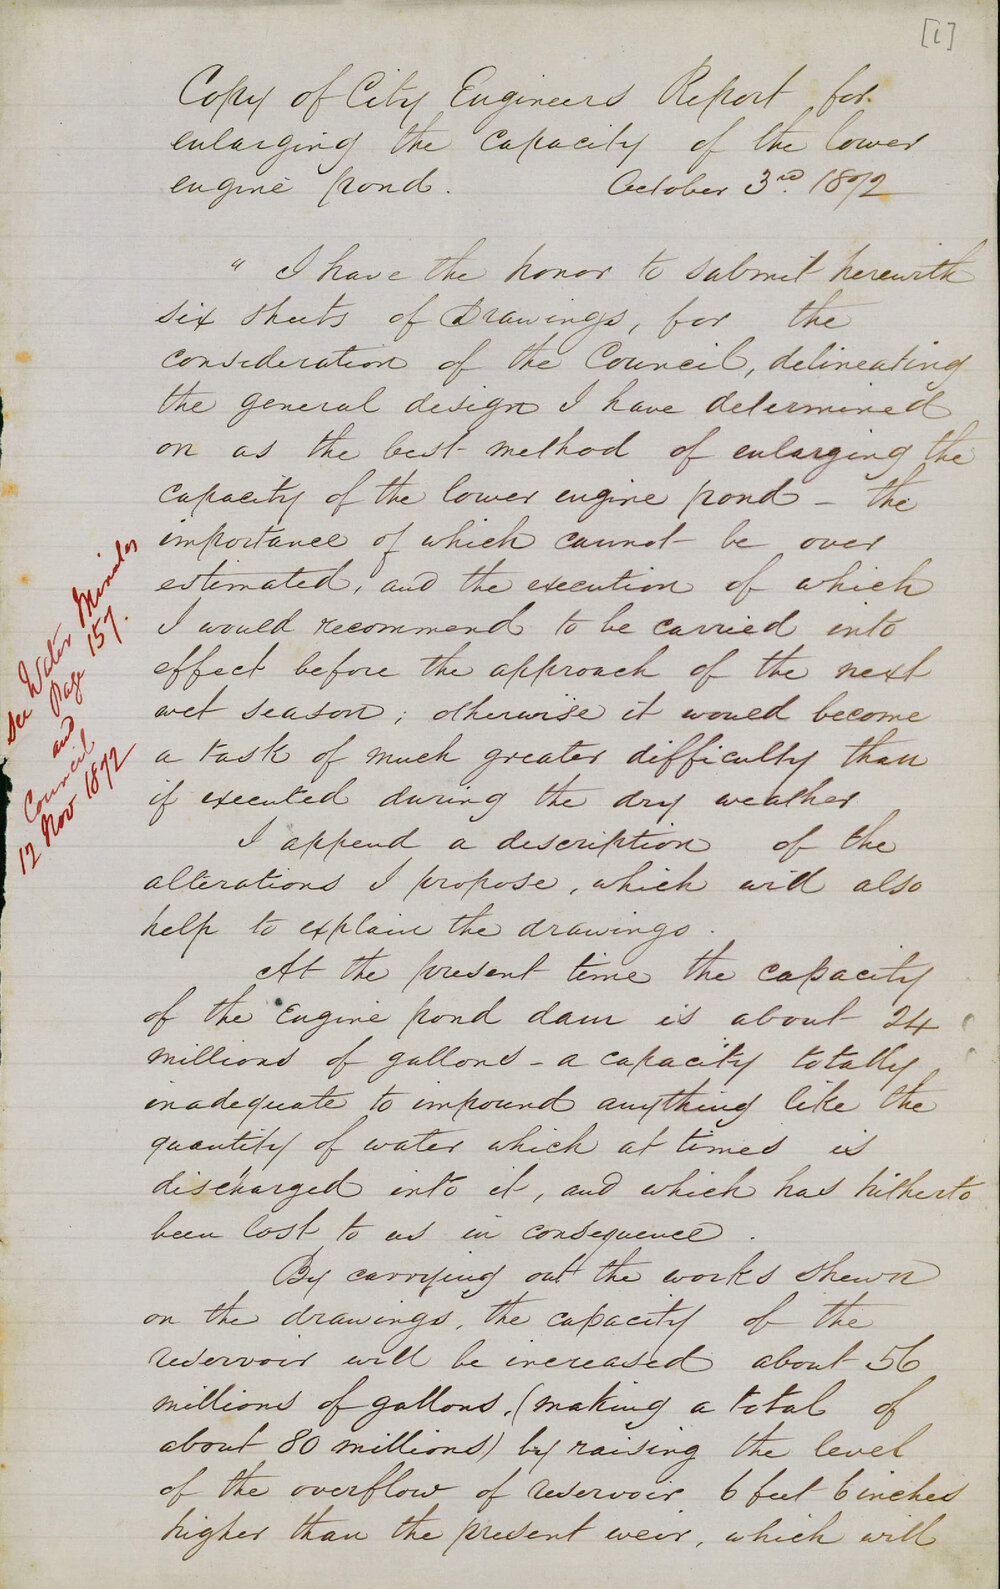 [1]
Copy of City Engineers Report for
enlarging the capacity of the lower
engine pond. October 3rd. 1872
" I have the honor to submit herewith
six sheets of Drawings, for the
consideration of the Council, delineating
the general design I have determined
on as the best method of enlarging the
capacity of the lower engine pond - the
importance of which cannot be over
estimated, and the execution of which
I would recommend to be carried into
effect before the approach of the next
wet season; otherwise it would become
a task of much greater difficulty than
if executed during the dry weather
I append a description of the
alterations I propose, which will also
help to explain the drawings.
At the present time the capacity
of the Engine pond dam is about 24
millions of gallons - a capacity totally
inadequate to impound anything like the
quantity of water which at times is
discharged into it, and which has hitherto
been lost to us in consequence.
By carrying out the works shewn
on the drawings, the capacity of the
reservoir will be increased about 56
millions of gallons, (making a total of
about 80 millions) by raising the level
of the overflow of reservoir 6 feet 6 inches
higher than the present weir, which will
See Water Minutes
Page 157.
and
Council
12 Nov 1872